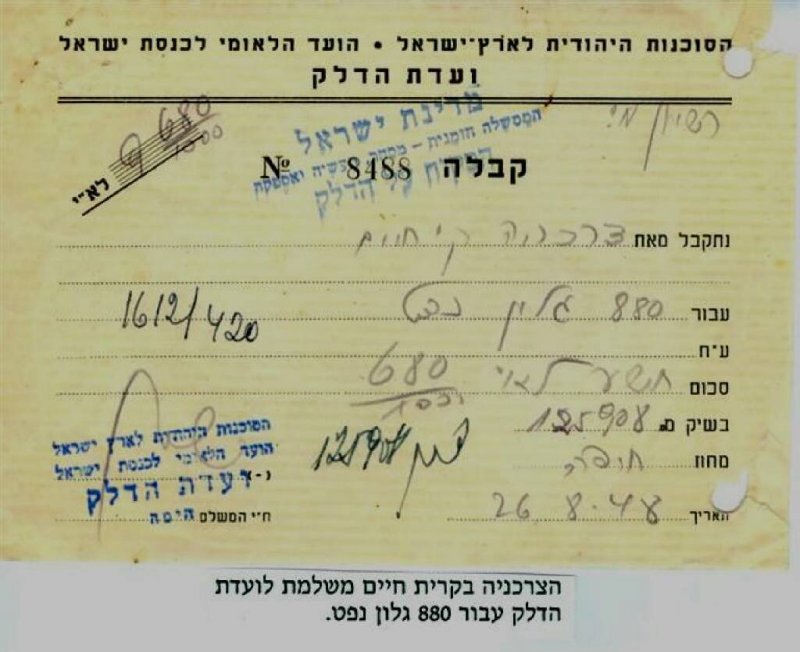 הסוכנות היהודית לארץ־ישראל • הועד הלאומי לכנסת ישראל
ועדת הדלק
מדינת ישראל
הממשלה הזמנית –
הדלק
680
1000
לא״י
קבלה 8488 №
נתקבל מאת צרכניה ק׳ חיים
עבור 880 גלון נפט
1612/420
ע״ח
סכום תשע לא״י 680
בשיק מ. 125908
125908
מחוז חיפה
תאריך 26.8.48
הסוכנות היהודית לארץ ישראל
הועד הלאומי לכנסת ישראל
ועדת הדלק
חיפה
ח״י המשלם
הצרכניה בקרית חיים משלמת לועדת
הדלק עבור 880 גלון נפט.